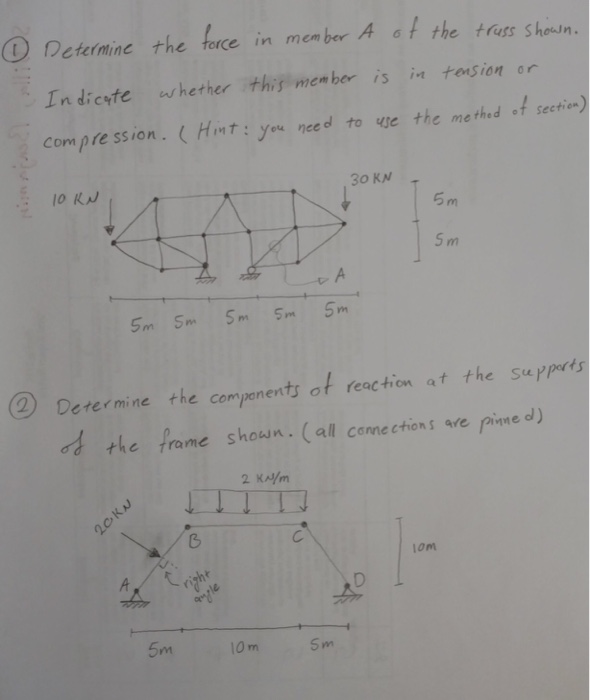 ① Determine the force in member A of the truss shown.
Indicate whether this member is in tension or
compression. (Hint: you need to use the method of section)
10 KN
30 KN
5m
5m
A
5m 5m 5m 5m 5m
② Determine the components of reaction at the supports
of the frame shown. (all connections are pinned)
2 KN/m
20KN
B
C
10m
A
right
angle
D
5m 10m 5m